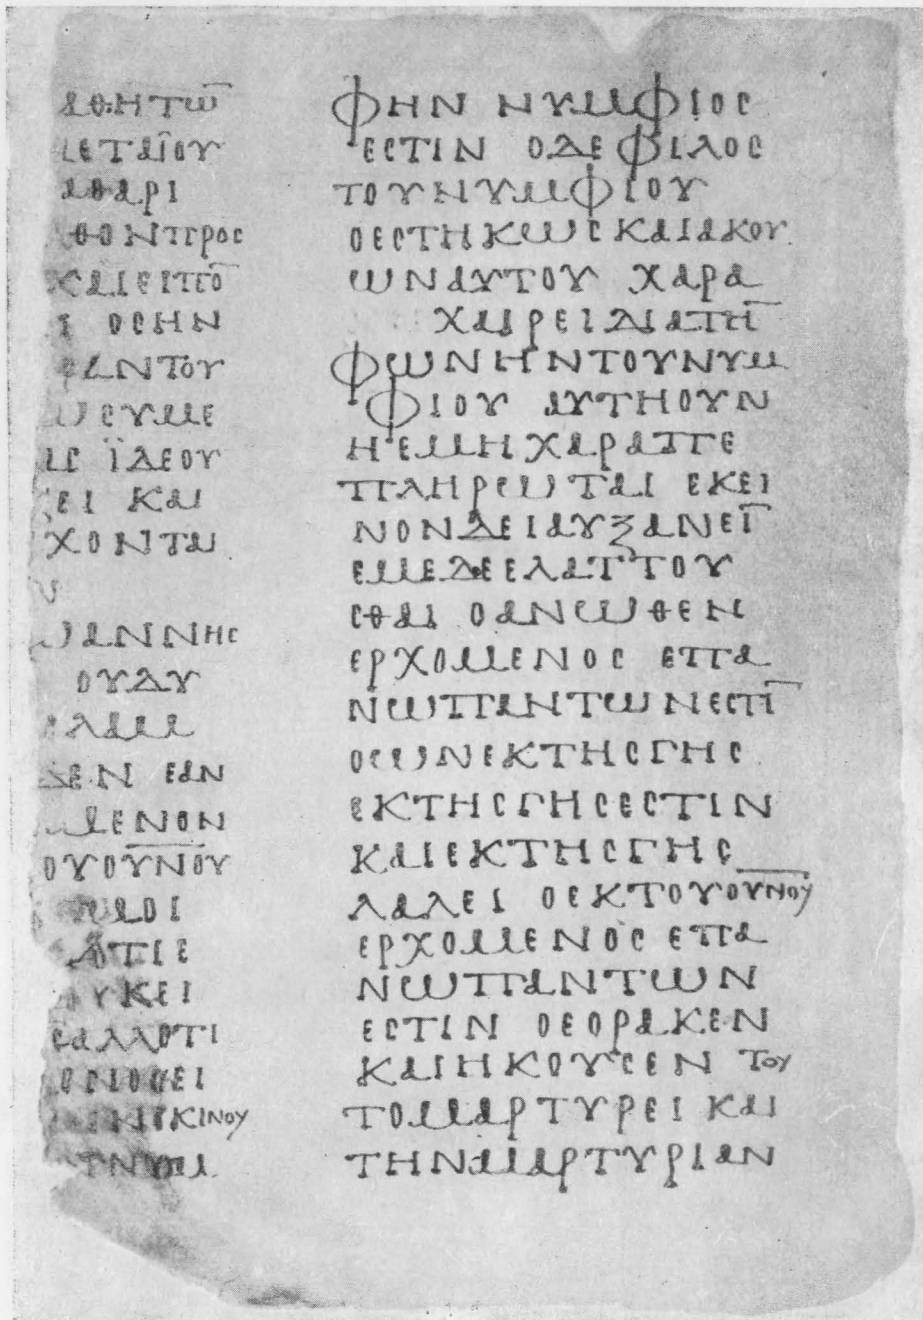 ΑΘΗΤΩ̅
ΕΤΑΪΟΥ
ΑΘΑΡΙ
ΛΘΟΝΠΡΟϹ
ΚΑΙΕΙΠΟ̅
Ι ΟϹΗΝ
ΡΑΝΤΟΥ
ΩϹΥΜΕ
ΑϹ ΪΔΕΟΥ
ΖΕΙ ΚΑΙ
ΧΟΝΤΑΙ
Ν
ΩΑΝΝΗϹ
ΟΥΔΥ
ΛΑΜ
ΔΕΝ ΕΑΝ
ΜΕΝΟΝ
ΟΥΟΥ̅Ν̅ΟΥ̅
ΜΟΙ
ΟΤΙΕ
ΟΥΚΕΙ
ϹΑΛΛΟΤΙ
ΚΙΝΟΥ
ΤΝΥΜ
ΦΗΝ ΝΥΜΦΙΟϹ
ΕϹΤΙΝ ΟΔΕ ΦΙΛΟϹ
ΤΟΥΝΥΜΦΙΟΥ
ΟΕϹΤΗΚΩϹ ΚΑΙΑΚΟΥ
ΩΝΑΥΤΟΥ ΧΑΡΑ
ΧΑΙΡΕΙ ΔΙΑΤΗ̅
ΦΩΝΗΝΤΟΥΝΥΜ
ΦΙΟΥ ΑΥΤΗΟΥΝ
ΗΕΜΗΧΑΡΑΠΕ
ΠΛΗΡΩΤΑΙ ΕΚΕΙ
ΝΟΝΔΕΙΑΥΞΑΝΕΙ̅
ΕΜΕΔΕΕΛΑΤΤΟΥ
ϹΘΑΙ ΟΑΝΩΘΕΝ
ΕΡΧΟΜΕΝΟϹ ΕΠΑ
ΝΩΠΑΝΤΩΝΕϹΤΙ̅
ΟΩΝΕΚΤΗϹΓΗϹ
ΕΚΤΗϹΓΗϹΕϹΤΙΝ
ΚΑΙΕΚΤΗϹΓΗϹ
ΛΑΛΕΙ ΟΕΚΤΟΥΟΥ̅Ν̅ΟΥ̅
ΕΡΧΟΜΕΝΟϹ ΕΠΑ
ΝΩΠΑΝΤΩΝ
ΕϹΤΙΝ ΟΕΟΡΑΚΕΝ
ΚΑΙΗΚΟΥϹΕΝ ΤΟΥ
ΤΟΜΑΡΤΥΡΕΙ ΚΑΙ
ΤΗΝΜΑΡΤΥΡΙΑΝ